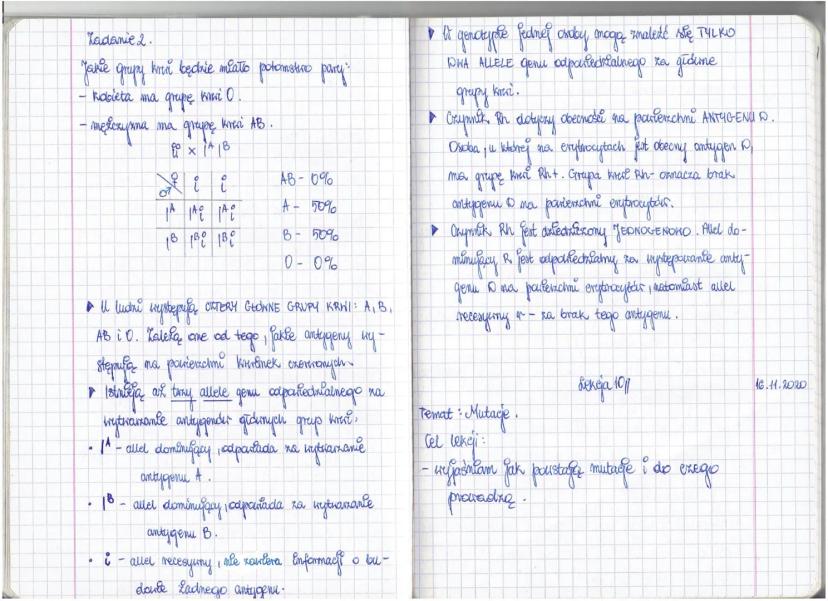 Zadanie 2.
Jakie grupy krwi będzie miało potomstwo pary:
- kobieta ma grupę krwi O.
- mężczyzna ma grupę krwi AB.
ii × IᴬIᴮ
♀ i i
♂
Iᴬ Iᴬi Iᴬi
Iᴮ Iᴮi Iᴮi
AB - 0%
A - 50%
B - 50%
O - 0%
▶ U ludzi występują CZTERY GŁÓWNE GRUPY KRWI: A, B,
AB i O. Zależą one od tego, jakie antygeny wy-
stępują na powierzchni krwinek czerwonych.
▶ Istnieją aż trzy allele genu odpowiedzialnego za
wytwarzanie antygenów głównych grup krwi:
• Iᴬ - allel dominujący, odpowiada za wytwarzanie
antygenu A.
• Iᴮ - allel dominujący, odpowiada za wytwarzanie
antygenu B.
• i - allel recesywny, nie zawiera informacji o bu-
dowie żadnego antygenu.
▶ W genotypie jednej osoby mogą znaleźć się TYLKO
DWA ALLELE genu odpowiedzialnego za główne
grupy krwi.
▶ Czynnik Rh dotyczy obecności na powierzchni ANTYGENU D.
Osoba, u której na erytrocytach jest obecny antygen D,
ma grupę krwi Rh+. Grupa krwi Rh- oznacza brak
antygenu D na powierzchni erytrocytów.
▶ Czynnik Rh jest dziedziczony JEDNOGENOWO. Allel do-
minujący R jest odpowiedzialny za występowanie anty-
genu D na powierzchni erytrocytów, natomiast allel
recesywny r - za brak tego antygenu.
Lekcja 10 16.11.2020
Temat: Mutacje.
Cel lekcji:
- wyjaśniam jak powstają mutacje i do czego
prowadzą.